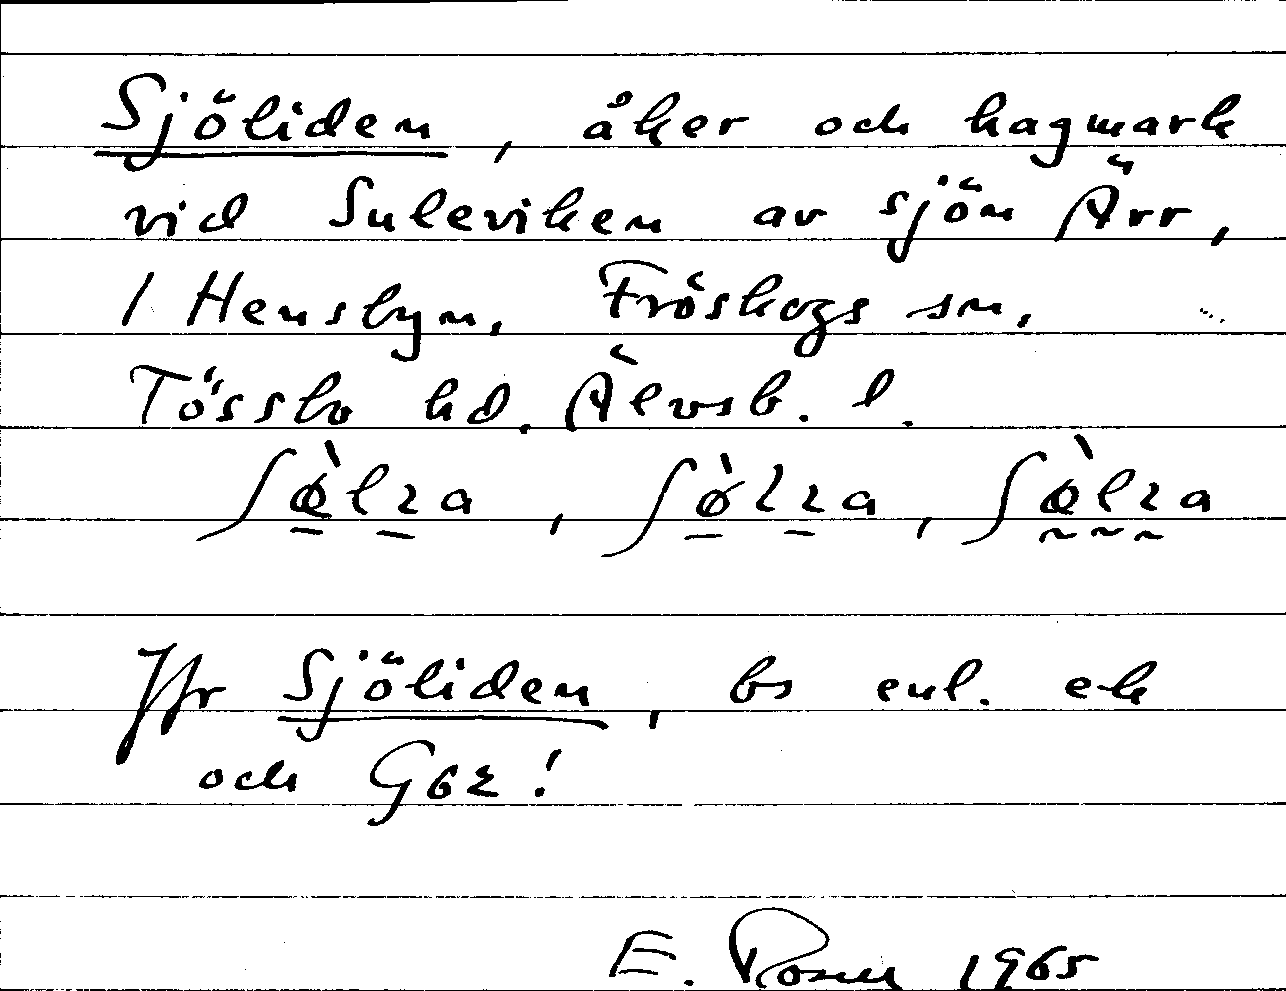 Sjöliden, åker och hagmark
vid Suleviken av sjön Ärr,
1 Hensbyn, Fröskogs sn,
Tössbo hd. Älvsb. l.
Jfr Sjöliden, bs enl. ek
och Gbz!
E. Rosell 1965